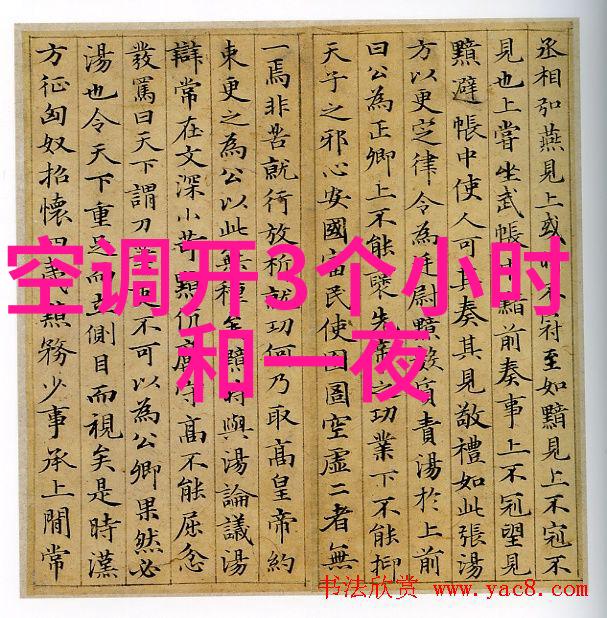 丞相弘燕見上或時不冠至如黯見上不冠不
見也上嘗坐武帳中黯前奏事上不冠望見
黯避帳中使人可其奏其見敬禮如此張湯
方以更定律令為廷尉黯數質責湯於上前
曰公為正卿上不能襃先帝之功業下不能抑
天子之邪心安國富民使囹圄空虛二者無
一焉非苦就行放析就功何乃取高皇帝約
束更之為公以此無種矣黯時與湯論議湯
辯常在文深小苛黯伉厲守高不能屈忿
發罵曰天下謂刀筆吏不可以為公卿果然必
湯也令天下重足而立側目而視矣是時漢
方征匈奴招懷四夷黯務少事承上間常
空调开3个小时
和一夜
书法欣赏 www.yac8.com